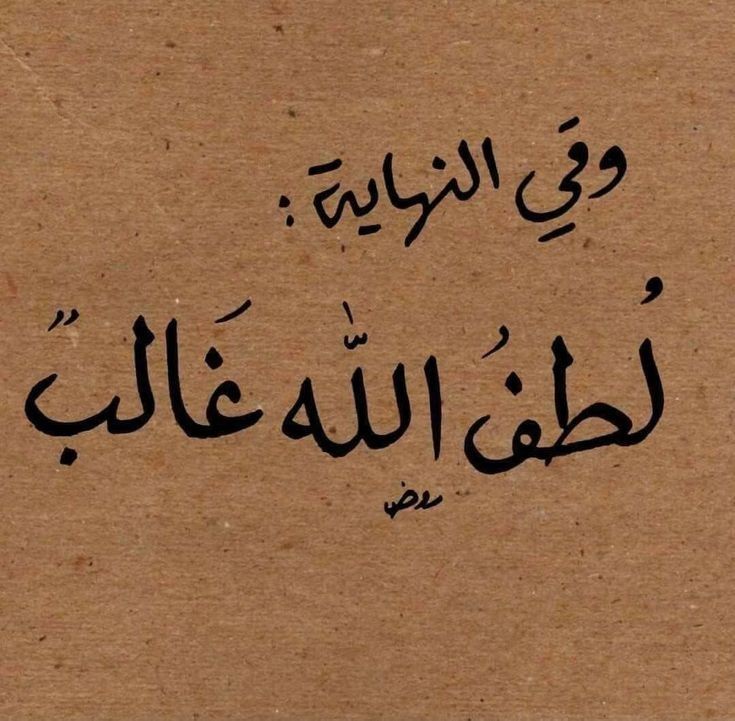 وفي النهاية :
لُطفُ اللّٰه غَالبٌ
روض